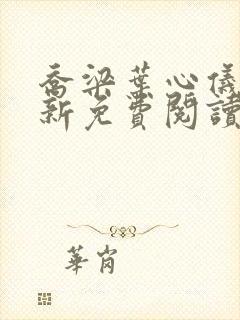 喬梁葉心儀
新免費閱讀
華崗